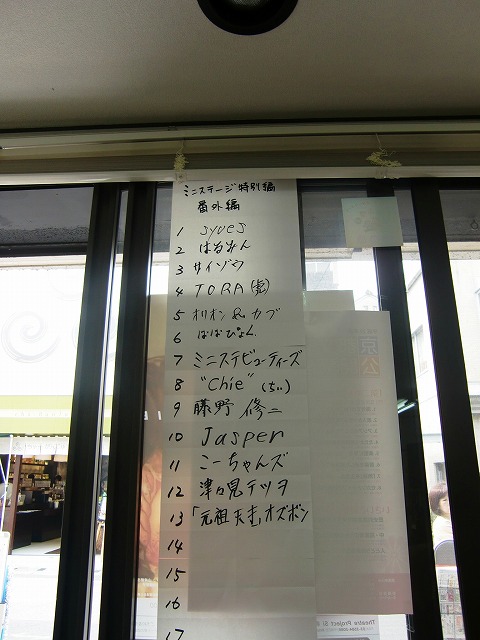 ミニステージ特別編
番外編
1 syues
2 はるみん
3 サイゾウ
4 TORA(虎)
5 オリオン&カブ
6 ばばぴょん
7 ミニステビューティーズ
8 "Chie"(ちぃ)
9 藤野 修二
10 Jasper
11 こーちゃんズ
12 津々見テツヲ
13 「元祖天圭」オズボン
14
15
16
17
Theatre Project